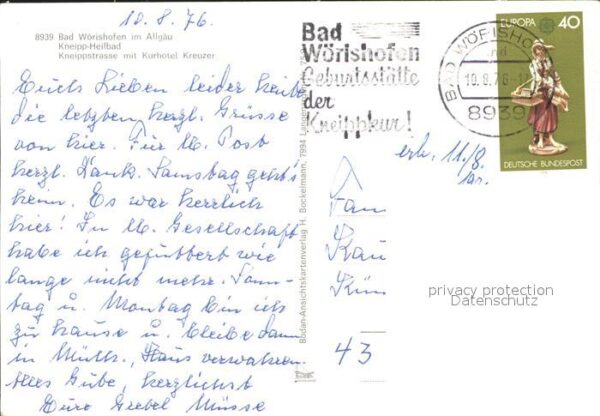 10.8.76.
8939 Bad Wörishofen im Allgäu
Kneipp-Heilbad
Kneippstrasse mit Kurhotel Kreuzer
Euch Lieben leider heute
die letzten herzl. Grüsse
von hier. Für lb. Post
herzl. Dank. Samstag geht's
heim. Es war herrlich
hier! In lb. Gesellschaft
habe ich gefuttert wie
lange nicht mehr. Sonn-
tag u. Montag bin ich
zu hause u. bleibe dann
in Müllh., Haus verwahren.
Alles Gute, herzlichst
Eure
Bodan-Ansichtskartenverlag H. Bockelmann, 7994
Bad
Wörishofen
Geburtsstätte
der
Kneippkur!
BAD WÖRISHO
10.8.76-1
8939
EUROPA 40
DEUTSCHE BUNDESPOST
erh. 11/8.
Fam
Kau
Kün
43
privacy protection
Datenschutz